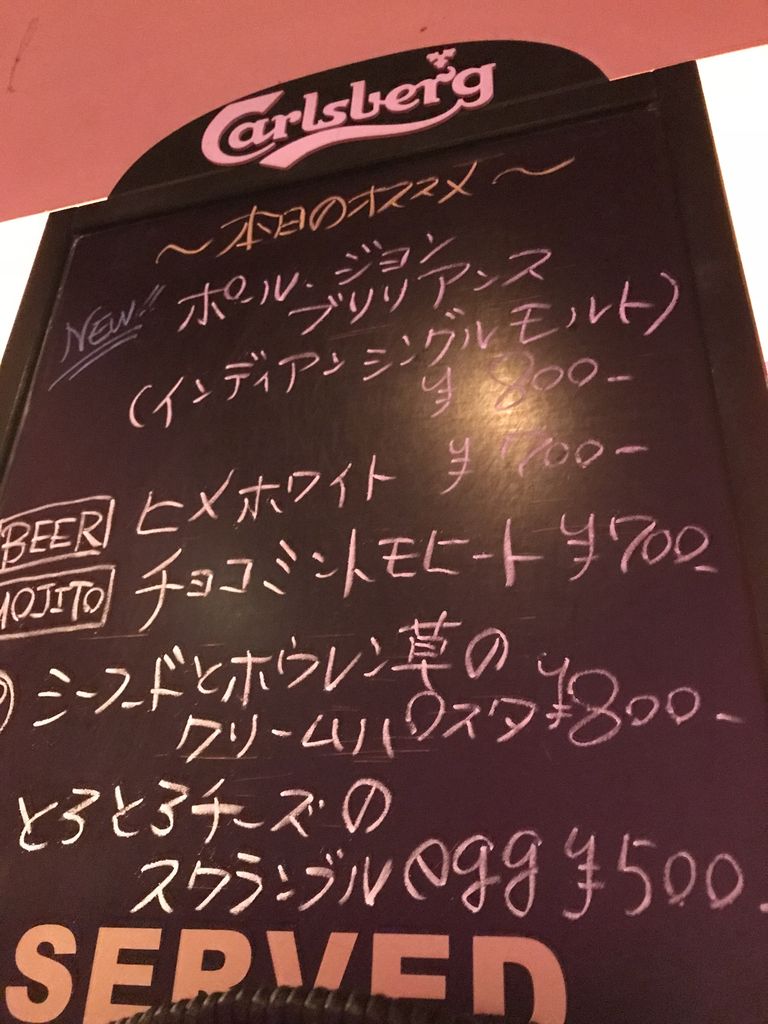 Carlsberg
～本日のオススメ～
NEW!! ポール・ジョン
ブリリアンス
(インディアンシングルモルト)
¥800-
BEER ヒメホワイト ¥700-
MOJITO チョコミントモヒート ¥700-
シーフードとホウレン草の
クリームパスタ ¥800-
とろとろチーズの
スクランブルegg ¥500-
SERVED